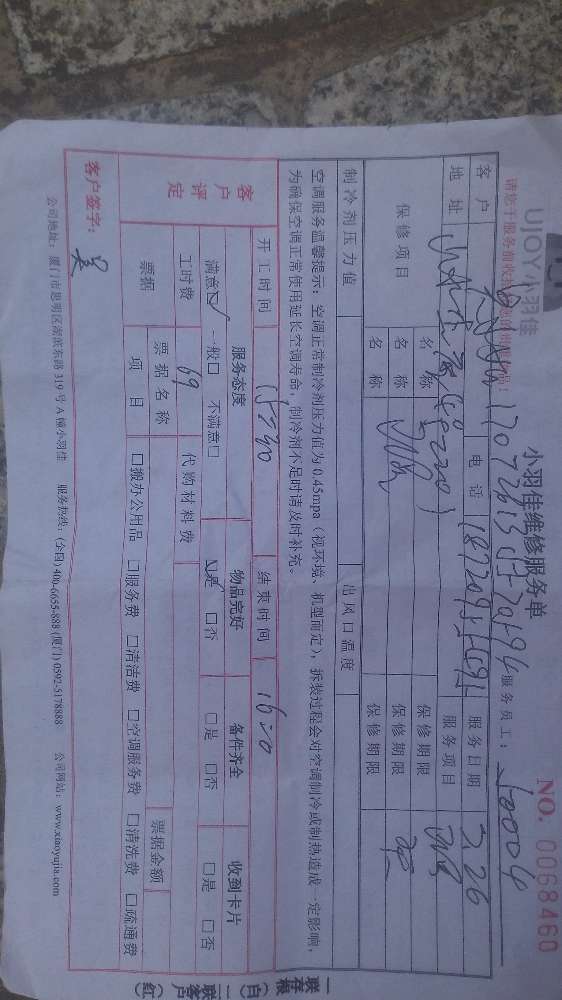 UJOY小羽佳
小羽佳维修服务单
NO. 0068460
服务员工：
客户 电话 服务日期 3.26
地址 服务项目
保修项目 名称 保修期限
名称 保修期限
名称 保修期限
制冷剂压力值 出风口温度
空调服务温馨提示：空调正常制冷剂压力值为0.45mpa（视环境、机型而定），拆装过程会对空调制冷或制热造成一定影响，
为确保空调正常使用延长空调寿命，制冷剂不足时请及时补充。
开工时间 15:30 结束时间 16:20
客户评定 服务态度 物品完好 备件齐全 收到卡片
满意☑ 一般□ 不满意□ ☑是 □否 □是 □否 □是 □否
工时费 69 代购材料费
票据 票据名称 票据金额
项目 □搬办公用品 □服务费 □清洁费 □空调服务费 □清洗费 □疏通费
客户签字： 吴
公司地址：厦门市思明区 319号A幢小羽佳 服务热线：(全国) 400-6655-888 (厦门) 0592-5178888 公司网站：www.xiaoyujia.com
一联存根（白）二联客户（红）